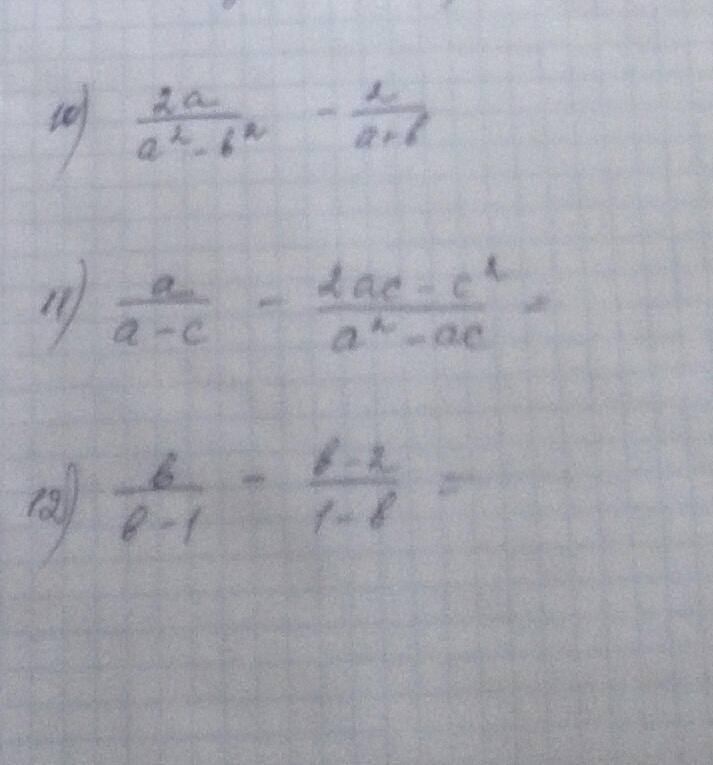 10) 2a / (a² - b²) - 2 / (a + b)
11) a / (a - c) - (2ac - c²) / (a² - ac) =
12) b / (b - 1) - (b - 2) / (1 - b) =